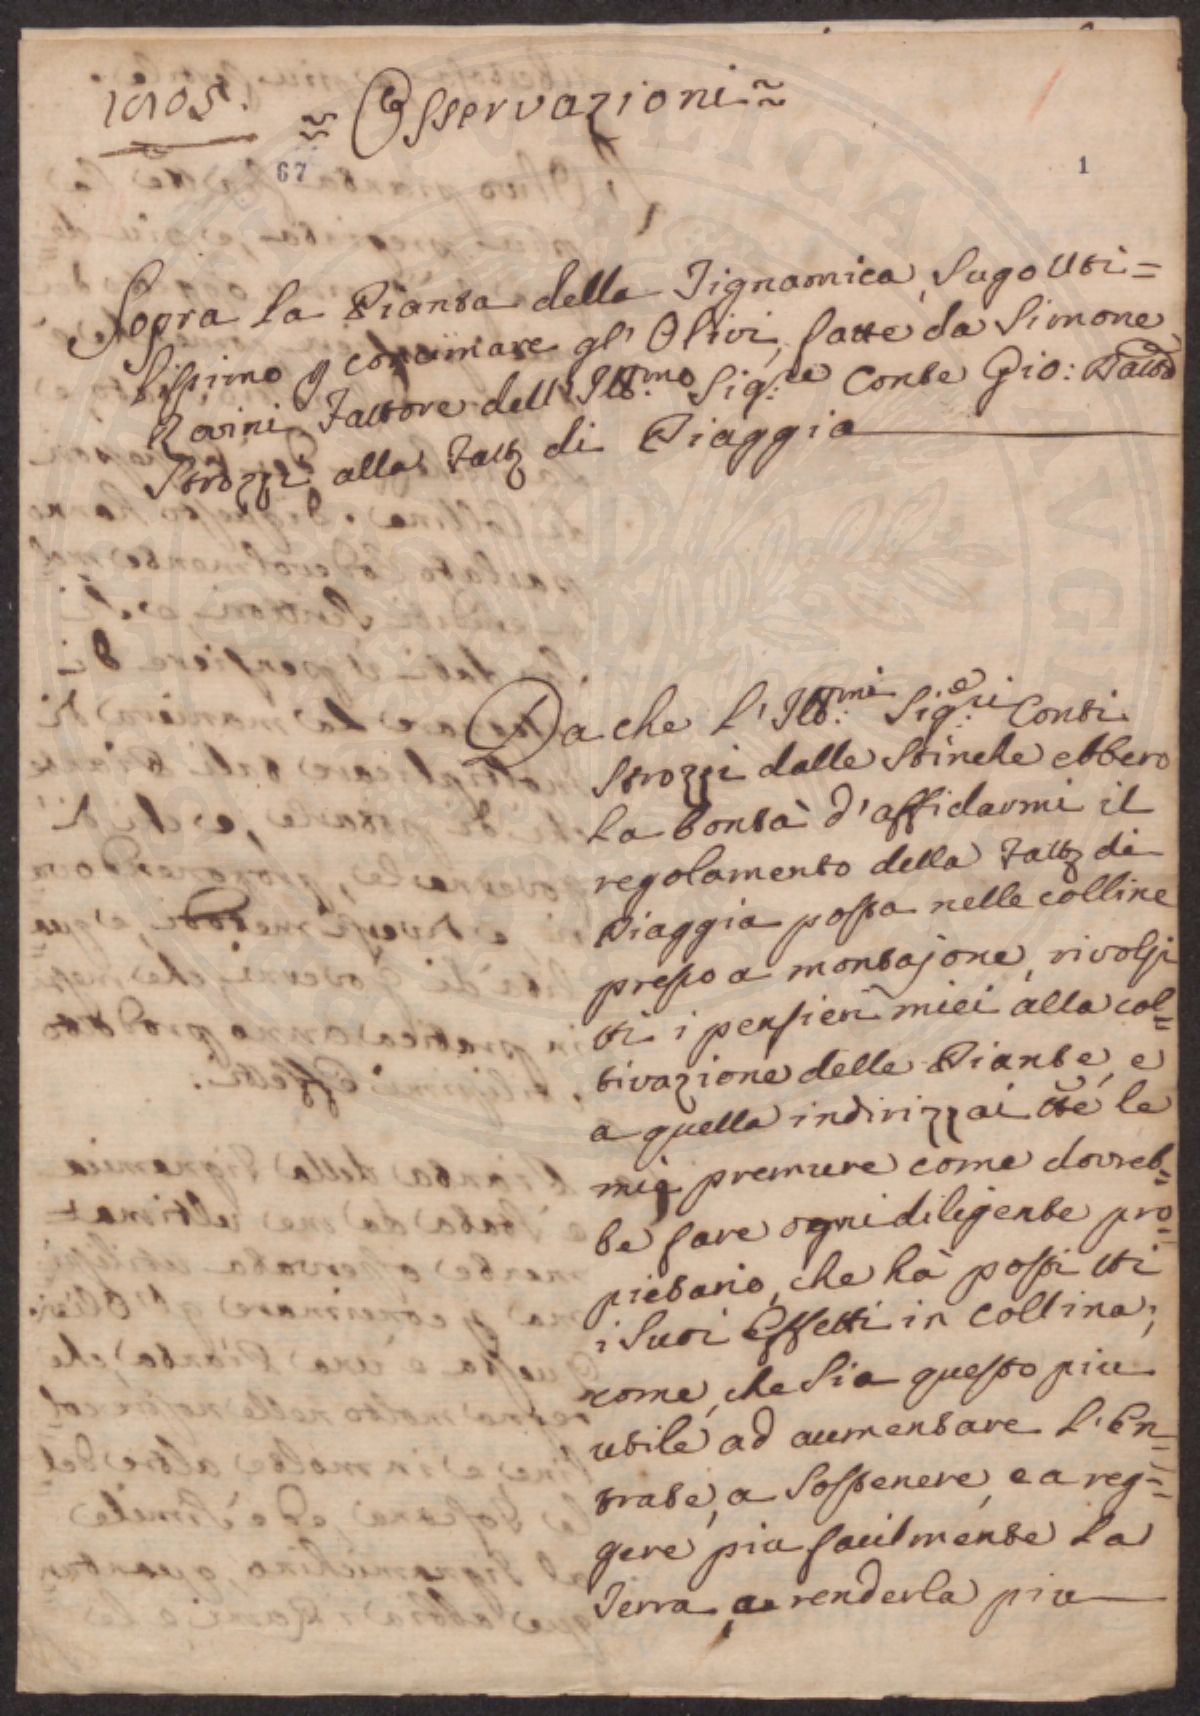 10105.
≈ Osservazioni ≈
67
1
Sopra la Pianta della Tignamica, sugo Uti=
lissimo p concimare gl' Olivi, fatte da Simone
Rovini Fattore dell' Ill:mo Sig:re Conte Gio: Batta
Strozzi alla Fatt.a di Piaggia
Da che l' Ill:mi Sig:ri Conti
Strozzi dalle Stinche ebbero
la bontà d' affidarmi il
regolamento della Fatt.a di
Piaggia posta nelle colline
presso a montajone, rivolsi
tti i pensieri miei alla col=
tivazione delle Piante, e
a quella indirizzai tte le
mie premure come dovreb=
be fare ogni diligente pro=
pietario, che hà posti tti
i suoi Effetti in collina;
come, che sia questo piu
utile ad aumentare l' En=
trate, a sostenere, e a reg=
gere piu facilmente la
Terra, a renderla piu